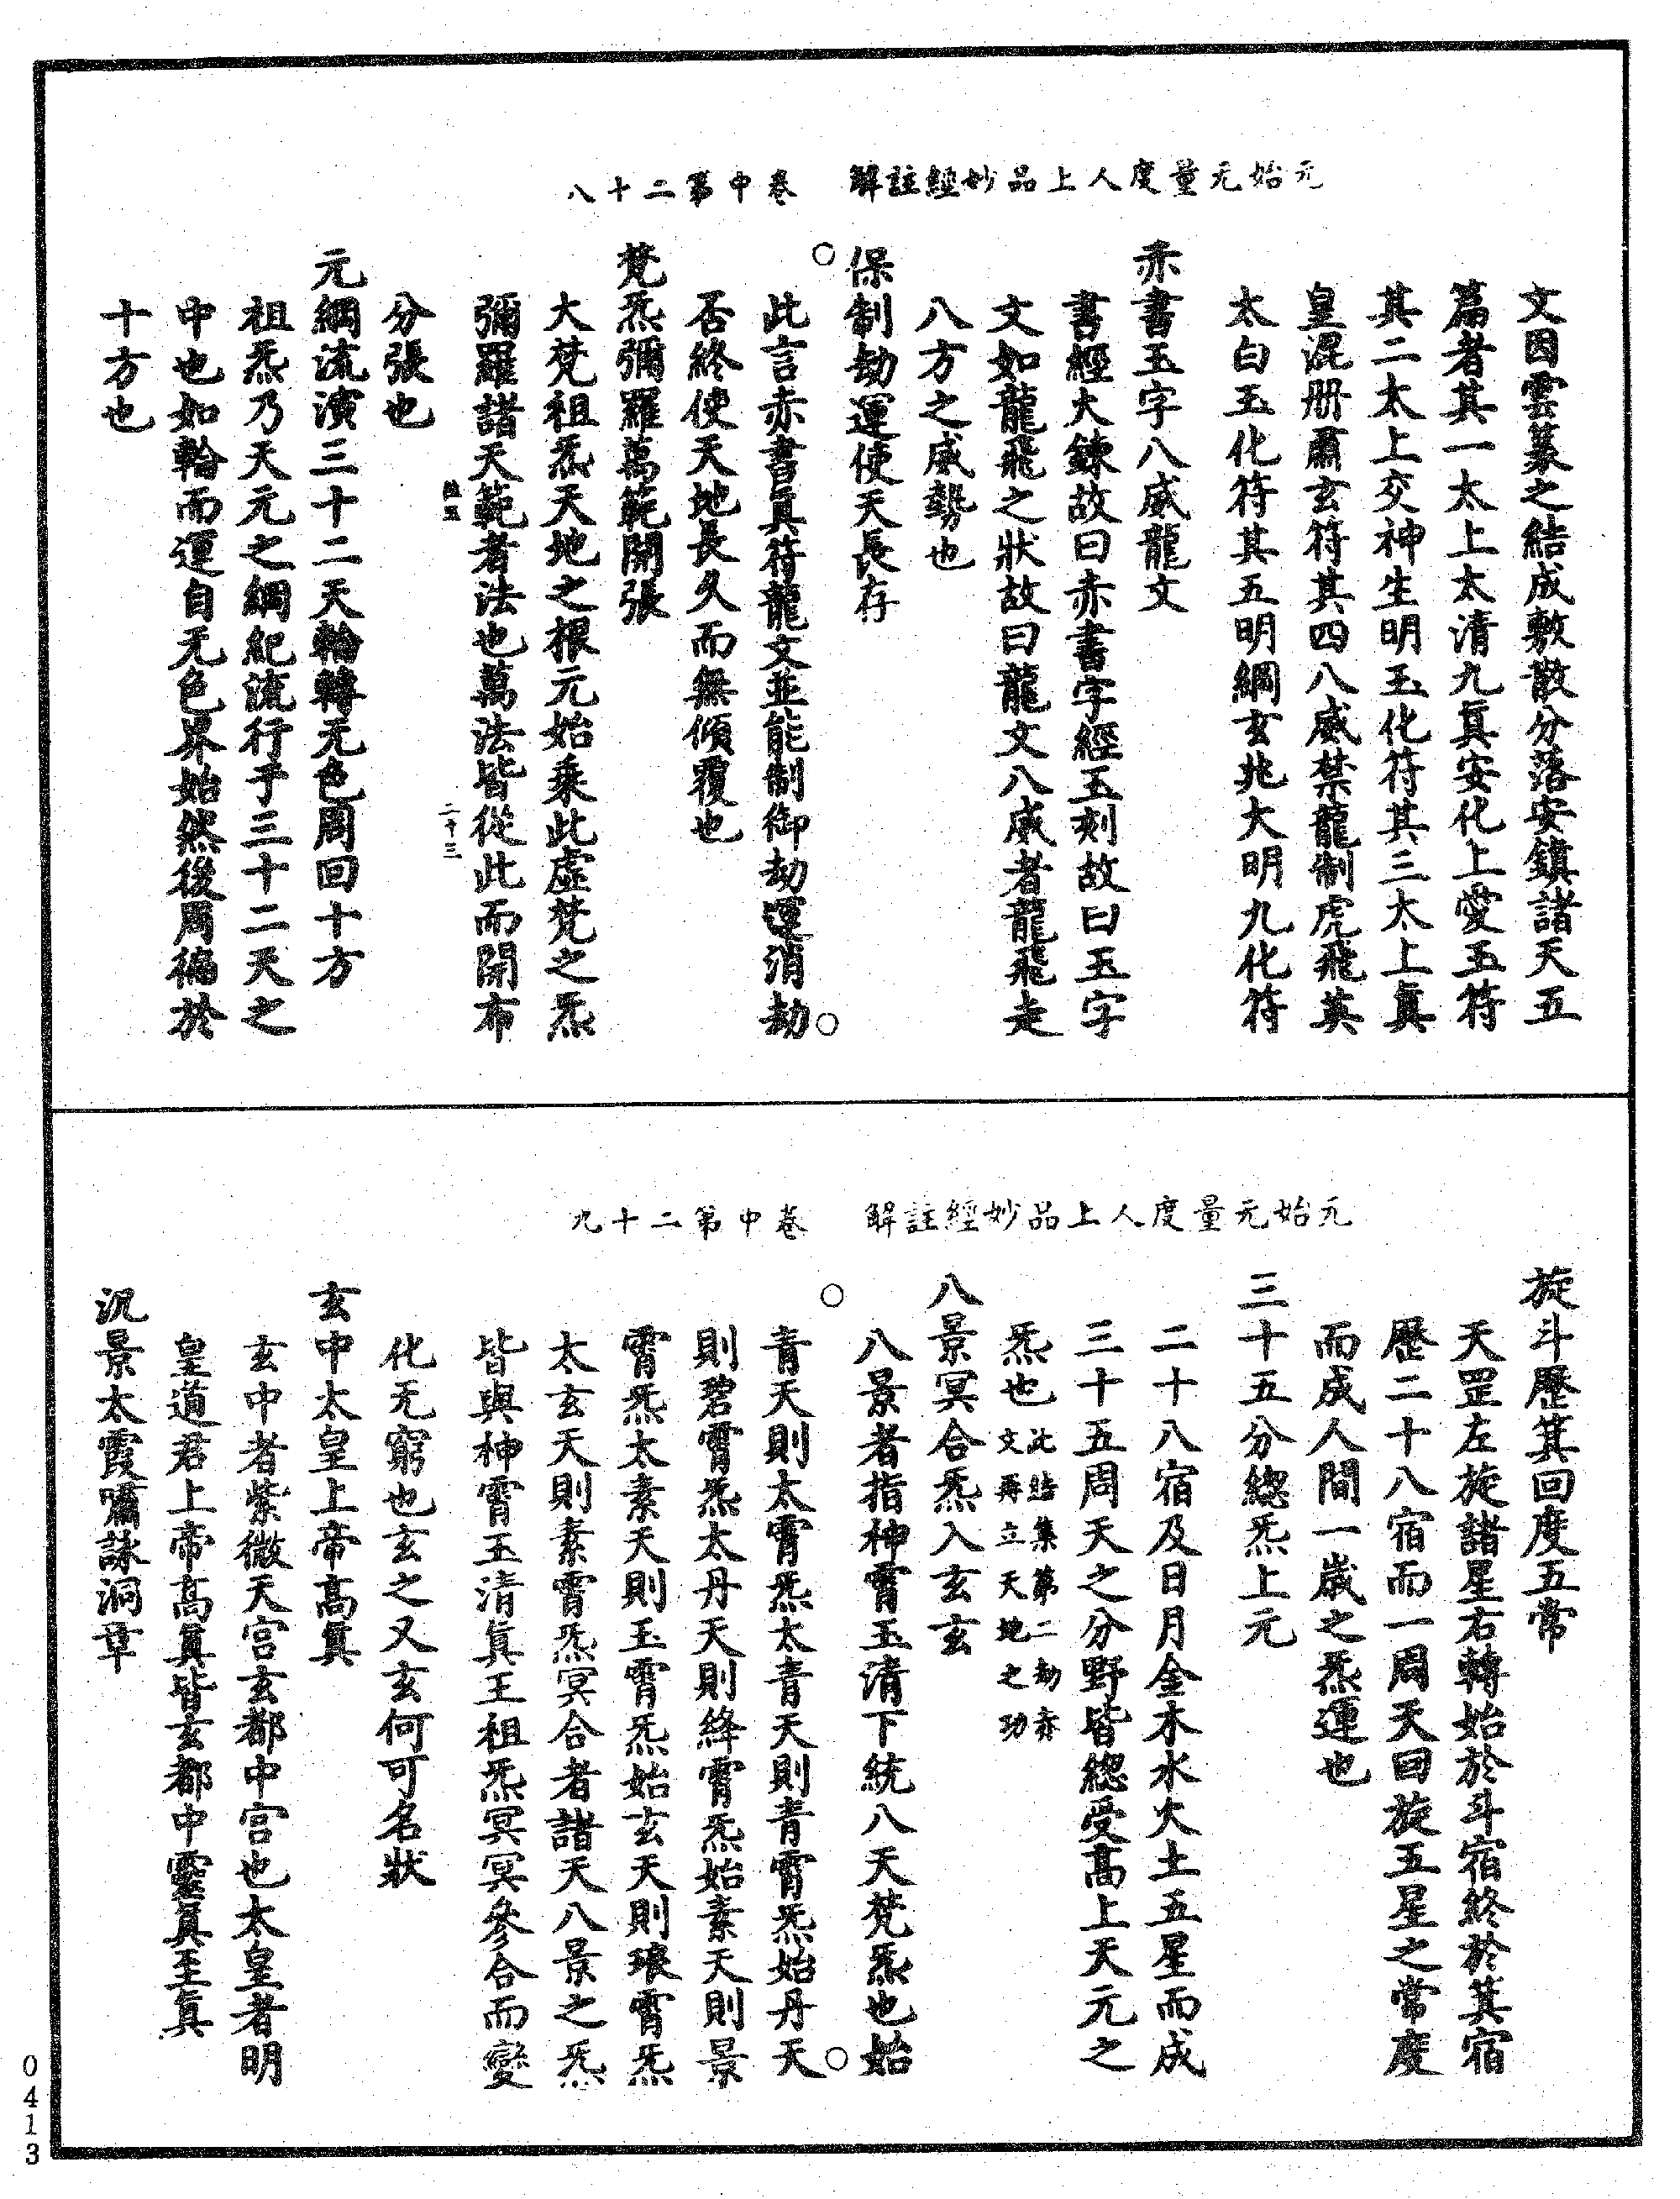 元始无量度人上品妙經註解　卷中第二十八
文因雲篆之結成敷散分落安鎮諸天五
篇者其一太上太清九眞安化上愛玉符
其二太上交神生明玉化符其三太上眞
皇混册肅玄符其四八威禁龍制虎飛英
太白玉化符其五明綱玄兆大明九化符
赤書玉字八威龍文
書經大鍊故曰赤書字經玉刻故曰玉字
文如龍飛之狀故曰龍文八威者龍飛走
八方之威勢也
保制劫運使天長存
此言赤書眞符龍文並能制御劫運消劫
否終使天地長久而無傾覆也
梵炁彌羅萬範開張
大梵祖炁天地之根元始乘此虛梵之炁
彌羅諸天範者法也萬法皆從此而開布
二十三
分張也
元綱流演三十二天輪轉无色周回十方
祖炁乃天元之綱紀流行乎三十二天之
中也如輪而運自无色界始然後周徧於
十方也
元始无量度人上品妙經註解　卷中第二十九
旋斗歷箕回度五常
天罡左旋諸星右轉始於斗宿終於箕宿
歷二十八宿而一周天曰旋五星之常度
而成人間一歲之炁運也
三十五分總炁上元
二十八宿及日月金木水火土五星而成
三十五周天之分野皆總受高上天元之
炁也此結集第二劫亦文再立天地之功
八景冥合炁入玄玄
八景者指神霄玉清下統八天梵炁也始
青天則太霄炁太青天則青霄炁始丹天
則碧霄炁太丹天則絳霄炁始素天則景
霄炁太素天則玉霄炁始玄天則琅霄炁
太玄天則素霄炁冥合者諸天八景之炁
皆與神霄玉清眞王祖炁冥冥參合而變
化无窮也玄之又玄何可名狀
玄中太皇上帝高眞
玄中者紫微天宮玄都中宮也太皇者明
皇道君上帝高眞皆玄都中靈眞至眞
汎景太霞嘯詠洞章
0413